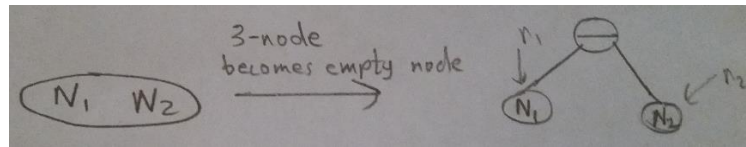 N₁ N₂
3-node
becomes empty node
r₁
N₁
N₂
r₂